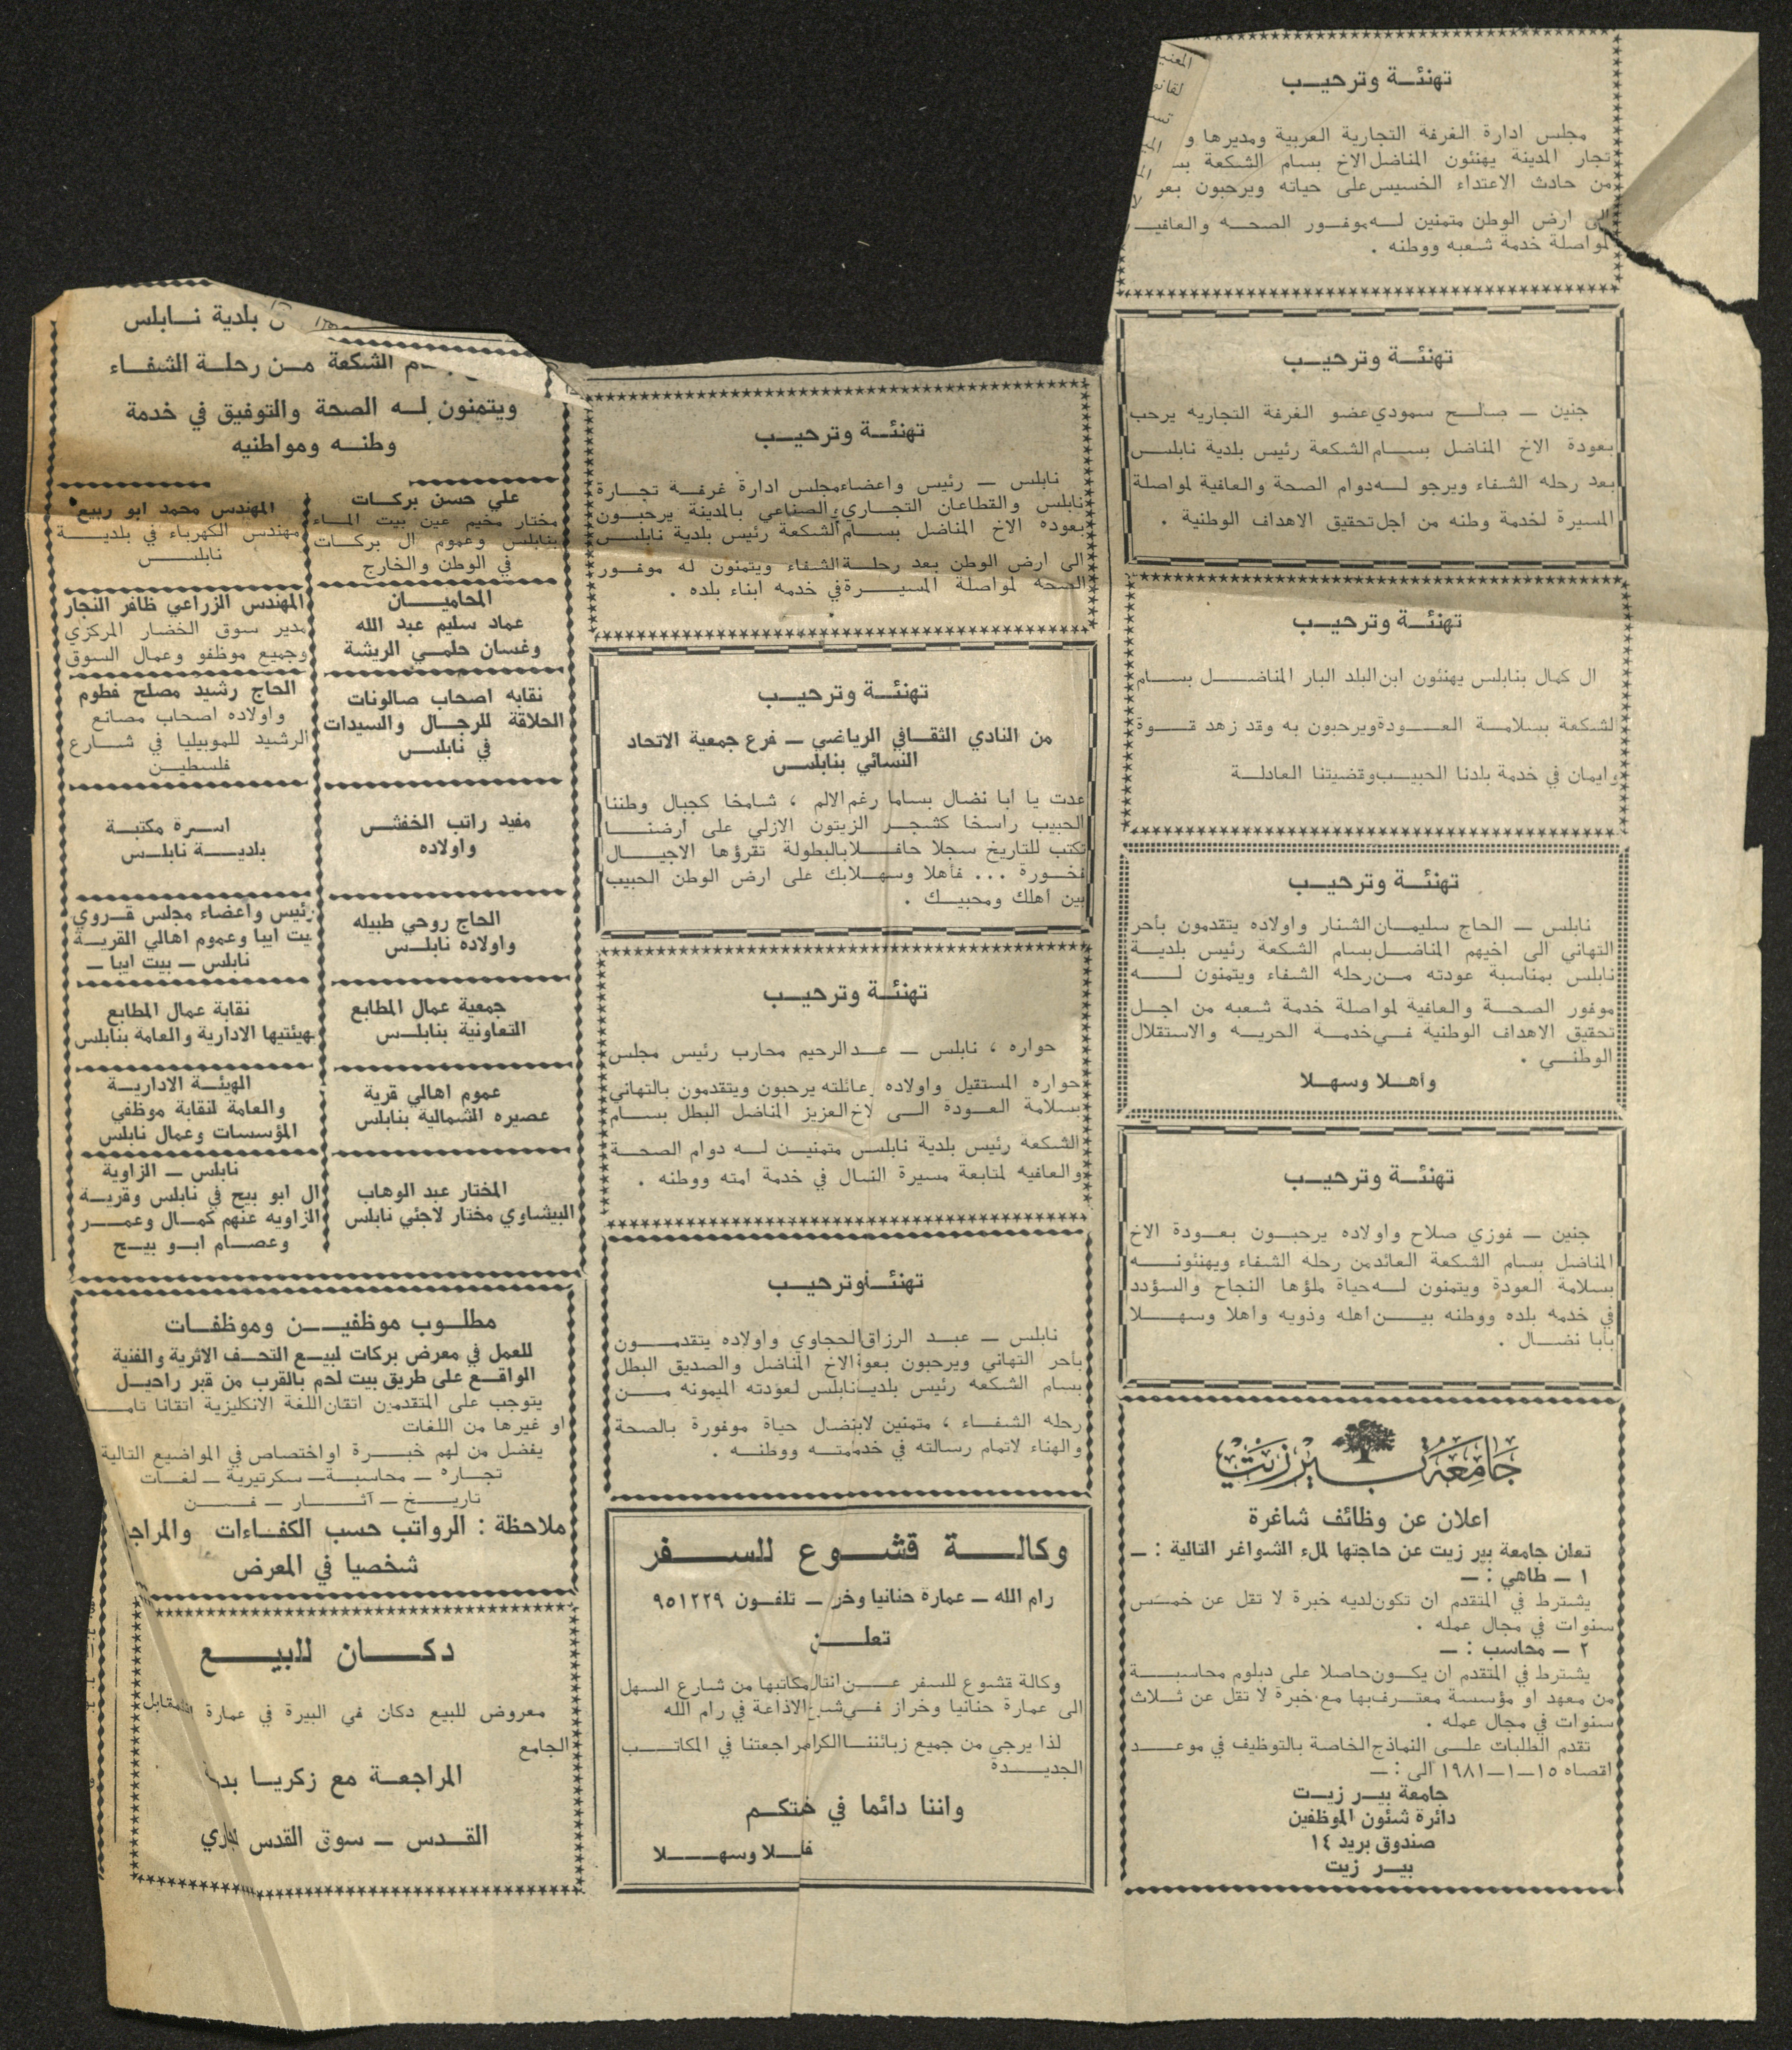 تهنئـــة وترحيـــب
مجلس ادارة الغرفة التجارية العربية ومديرها و
تجار المدينة يهنئون المناضل الاخ بسام الشكعة بسـ
من حادث الاعتداء الخسيس على حياته ويرحبون بعو
الى ارض الوطن متمنين لـــه موفـــور الصحـــه والعافيـــ
لمواصلة خدمة شعبه ووطنه .
تهنئـــة وترحيـــب
جنين ــ صالـــح سمودي عضو الغرفة التجاريه يرحب
بعودة الاخ المناضل بســـام الشكعة رئيس بلدية نابلـــس
بعد رحله الشفاء ويرجو لـــه دوام الصحة والعافية لمواصلة
المسيرة لخدمة وطنه من اجل تحقيق الاهداف الوطنية .
تهنئـــة وترحيـــب
ال كمال بنابلس يهنئون ابن البلد البار المناضـــل بســـام
لشكعة بسلامـــة العـــودة ويرحبون به وقد زهد قـــوة
وايمان في خدمة بلدنا الحبيـــب وقضيتنا العادلـــة
تهنئـــة وترحيـــب
نابلس ــ الحاج سليمـــان الشنار واولاده يتقدمون بأحر
التهاني الى اخيهم المناضـــل بسام الشكعة رئيس بلديـــة
نابلس بمناسبة عودته مـــن رحله الشفاء ويتمنون لـــه
موفور الصحـــة والعافية لمواصلة خدمة شعبه من اجـــل
تحقيق الاهداف الوطنية فـــي خدمـــة الحريـــه والاستقلال
الوطنـــي .
واهـــلا وسهـــلا
تهنئـــة وترحيـــب
جنين ــ فوزي صلاح واولاده يرحبـــون بعـــودة الاخ
المناضل بسام الشكعة العائد من رحله الشفاء ويهنئونـــه
بسلامة العودة ويتمنون لـــه حياة ملؤها النجاح والسؤدد
في خدمه بلده ووطنه بيـــن اهله وذويه واهلا وسهـــلا
بابا نضـــال .
جامعة بير زيت
اعلان عن وظائف شاغرة
تعلن جامعة بير زيت عن حاجتها لملء الشواغر التالية : ــ
١ ــ طاهي : ــ
يشترط في المتقدم ان تكون لديه خبرة لا تقل عن خمـــس
سنوات في مجال عمله .
٢ ــ محاسب : ــ
يشترط في المتقدم ان يكـــون حاصلا على دبلوم محاسبـــة
من معهد او مؤسسة معتـــرف بها مع خبرة لا تقل عن ثـــلاث
سنوات في مجال عمله .
تقدم الطلبات علـــى النماذج الخاصة بالتوظيف في موعـــد
اقصاه ١٥ــ١ــ١٩٨١ الى : ــ
جامعة بيـــر زيـــت
دائرة شئون الموظفين
صندوق بريد ١٤
بيـــر زيت
تهنئـــة وترحيـــب
نابلس ــ رئيس واعضاء مجلس ادارة غرفـــة تجـــارة
نابلس والقطاعان التجـــاري والصناعي بالمدينة يرحبـــون
بعوده الاخ المناضل بســـام الشكعة رئيس بلدية نابلـــس
الى ارض الوطن بعد رحلـــة الشفاء ويتمنون له موفـــور
الصحة لمواصلة المسيـــرة في خدمه ابناء بلده .
تهنئـــة وترحيـــب
من النادي الثقـــافي الرياضي ــ فرع جمعية الاتحاد
النسائي بنابلـــس
عدت يا ابا نضال بساما رغم الالم ، شامخا كجبال وطننا
الحبيب راسخا كشجـــر الزيتون الازلي على ارضنـــا
تكتب للتاريخ سجلا حافـــلا بالبطولة تقرؤها الاجيـــال
فخـــورة ... فأهلا وسهـــلا بك على ارض الوطن الحبيب
بين اهلك ومحبيـــك .
تهنئـــة وترحيـــب
حواره ، نابلس ــ عـــد الرحيم محارب رئيس مجلس
حواره المستقيل واولاده وعائلته يرحبون ويتقدمون بالتهاني
بسلامة العـــودة الـــى لاخ العزيز المناضل البطل بســـام
الشكعة رئيس بلدية نابلس متمنيـــن لـــه دوام الصحـــة
والعافيه لمتابعة مسيرة النسال في خدمة امته ووطنه .
تهنئـــة وترحيـــب
نابلس ــ عبـــد الرزاق الحجاوي واولاده يتقدمـــون
بأحر التهاني ويرحبون بعود الاخ المناضل والصديق البطل
بسام الشكعه رئيس بلديـــ نابلس لعودته الميمونه مـــن
رحله الشفـــاء ، متمنين لابنضال حياة موفورة بالصحة
والهناء لاتمام رسالته في خدمتـــه ووطنـــه .
وكالـــة قشـــوع للســـفر
رام الله ــ عمارة حنانيا وخر ــ تلفـــون ٩٥١٢٢٩
تعلـــن
وكالة قشوع للسفر عـــن انتقال مكاتبها من شارع السهل
الى عمارة حنانيا وخراز فـــي شارع الاذاعة في رام الله
لذا يرجي من جميع زبائننـــا الكرام مراجعتنا في المكاتـــب
الجديـــدة
واننا دائما في خدمتكـــم
فاهـــلا وسهـــلا
بلدية نـــابلس
الشكعة مـــن رحلـــة الشفـــاء
ويتمنون لـــه الصحة والتوفيق في خدمة
وطنـــه ومواطنيه
علي حسن بركـــات
مختار مخيم عين بيت المـــاء
بنابلس وعموم ال بركـــات
في الوطن والخارج
المهندس محمد ابو ربيع
مهندس الكهرباء في بلديـــة
نابلـــس
المحاميـــان
عماد سليم عبد الله
وغسان حلمـــي الريشة
المهندس الزراعي ظافر النجار
مدير سوق الخضار المركزي
وجميع موظفو وعمال السوق
نقابه اصحاب صالونات
الحلاقة للرجـــال والسيدات
في نابلـــس
الحاج رشيد مصلح فطوم
واولاده اصحاب مصانع
الرشيد للموبيليا في شـــارع
فلسطيـــن
مفيد راتب الخفشـــ
واولاده
اســـرة مكتبـــة
بلديـــة نابلـــس
الحاج روحي طبيله
واولاده نابلـــس
رئيس واعضاء مجلس قـــروي
بيت ايبا وعموم اهالي القريـــة
نابلس ــ بيت ايبا ــ
جمعية عمال المطابع
التعاونية بنابلـــس
نقابة عمال المطابع
بهيئتيها الادارية والعامة بنابلس
عموم اهالي قرية
عصيره الشمالية بنابلس
الهيئـــة الاداريـــة
والعامة لنقابة موظفي
المؤسسات وعمال نابلس
المختار عبد الوهاب
البيشاوي مختار لاجئي نابلس
نابلس ــ الزاوية
ال ابو بيح في نابلس وقريـــة
الزاويه عنهم كمـــال وعمـــر
وعصـــام ابـــو بيـــح
مطلـــوب موظفيـــن وموظفـــات
للعمل في معرض بركات لبيـــع التحـــف الاثرية والفنية
الواقـــع على طريق بيت لحم بالقرب من قبر راحيـــل
يتوجب على المتقدمين اتقان اللغة الانكليزية اتقانا تامـــا
او غيرها من اللغات
يفضل من لهم خبـــرة او اختصاص في المواضيع التالية
تجـــاره ــ محاسبـــة ــ سكرتيرية ــ لغـــات
تاريـــخ ــ آثـــار ــ فـــن
ملاحظة : الرواتب حسب الكفـــاءات والمراجـ
شخصيا في المعرض
دكـــان للبيـــع
معروض للبيع دكان في البيرة في عمارة مقابل
الجامع
المراجعـــة مع زكريـــا بد
القـــدس ــ سوق القدس